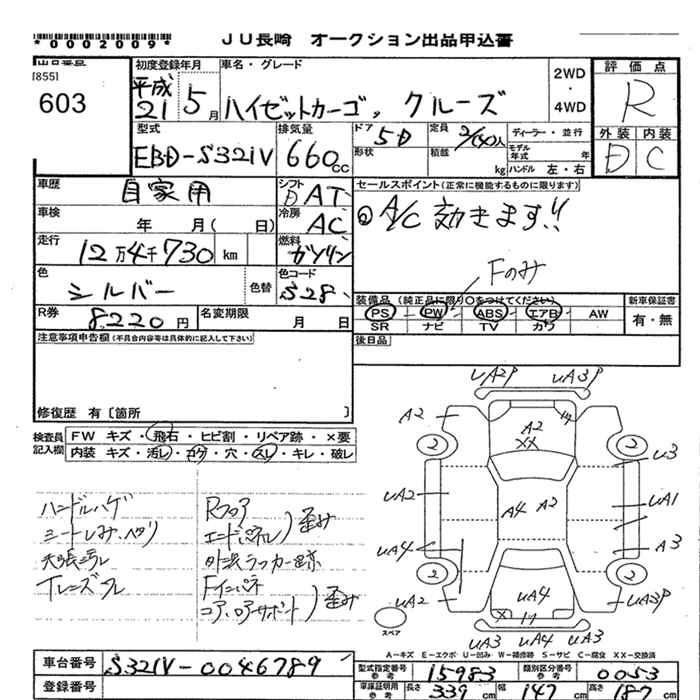 *0002009* JU長崎 オークション出品申込書
出品番号
[855]
603
初度登録年月
平成
21 5月
車名・グレード
ハイゼットカーゴ, クルーズ
2WD
・
4WD
評価点
R
外装 内装
D C
型式
EBD-S321V
排気量
660cc
ドア 5D
形状
定員
積載 kg
ディーラー・並行
モデル年式 年
ハンドル 左・右
車歴 自家用
シフト AT
車検 年 月( 日)
冷房 AC
走行 12万4千730km
燃料 ガソリン
色 シルバー 色替
色コード S28
R券 8220円
名変期限 月 日
セールスポイント(正常に機能するものに限ります)
A/C 効きます!!
Fのみ
装備品 (純正品に限り○をつけてください)
PS PW ABS エアB AW
SR ナビ TV カワ
新車保証書
有・無
注意事項申告欄(不具合内容等は具体的に記入して下さい)
後日品
修復歴 有〔箇所 〕
検査員記入欄
FW キズ・飛石・ヒビ割・リペア跡・×要
内装 キズ・汚レ・コゲ・穴・スレ・キレ・破レ
ハンドルハゲ
Rフロア
エンドパネル
歪み
Fインパネ
コアロアサポート
歪み
UA2P UA3P
A2
A2
XX
2
2
U3
UA2
A4 A2
UA1
UA4
A3
2
2
UA2
UA4
UA3P
スペア
UA3 UA4 UA3
A-キズ E-エクボ U-凹み W-補修跡 S-サビ C-腐食 XX-交換済
車台番号 S321V-0046789
登録番号
型式指定番号 参考 15983
類別区分番号 参考 0053
車庫証明用 参考 長さ 339cm 幅 147cm 高さ 187cm